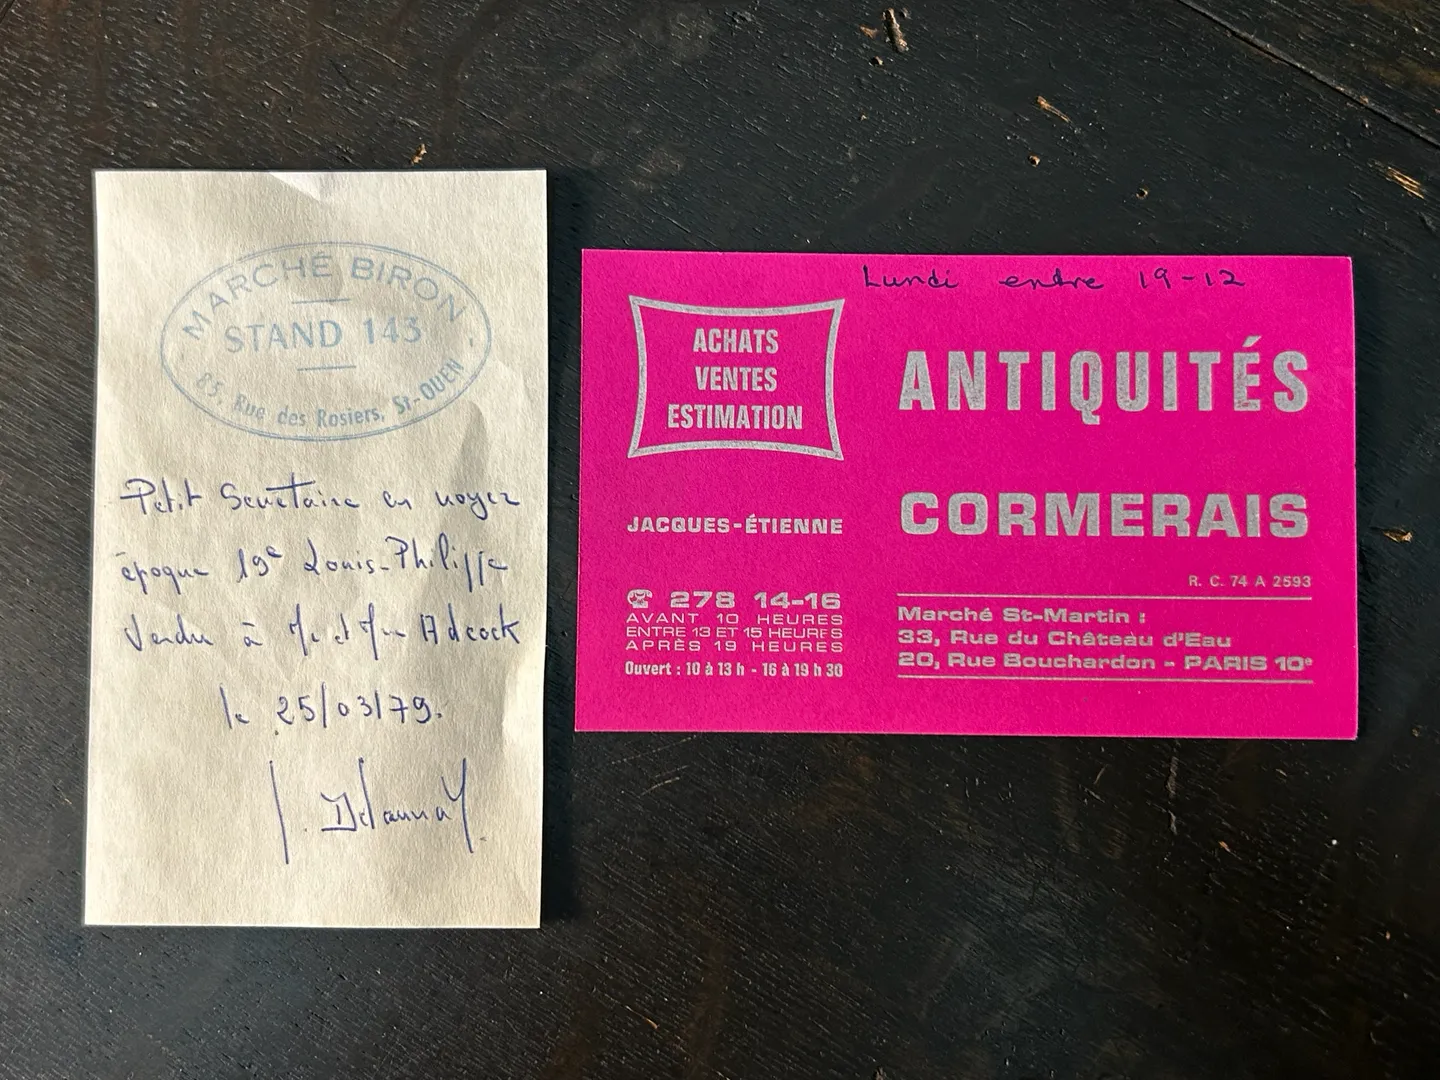 MARCHÉ BIRON
STAND 143
85, Rue des Rosiers, St-OUEN
Petit Secretaire en noyer
époque 19e Louis-Philippe
Vendu à Mr et Mme Adcock
le 25/03/79.
J. Delaunay
Lundi entre 19-12
ACHATS
VENTES
ESTIMATION
ANTIQUITÉS
JACQUES-ÉTIENNE
CORMERAIS
R. C. 74 A 2593
☎ 278 14-16
AVANT 10 HEURES
ENTRE 13 ET 15 HEURES
APRÈS 19 HEURES
Ouvert : 10 à 13 h - 16 à 19 h 30
Marché St-Martin :
33, Rue du Château d'Eau
20, Rue Bouchardon - PARIS 10e